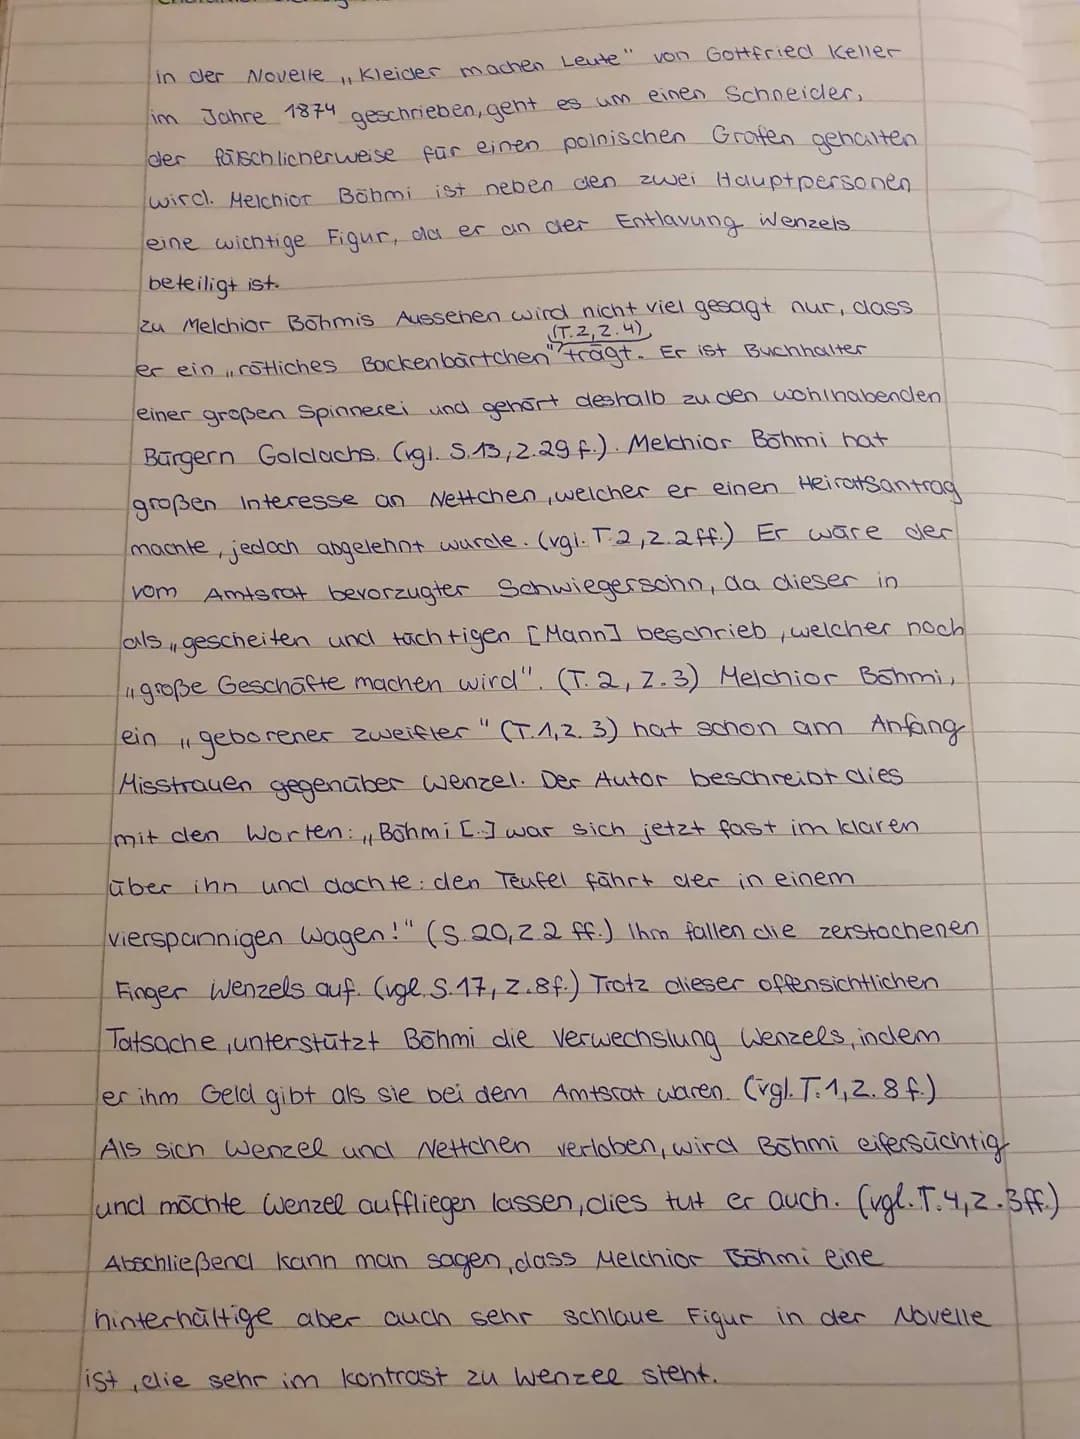 in der Novelle „Kleider machen Leute" von Gottfried Keller
im Jahre 1874 geschrieben, geht es um einen Schneider,
der fälschlicherweise für einen polnischen Grafen gehalten
wird. Melchior Böhmi ist neben den zwei Hauptpersonen
eine wichtige Figur, da er an der Entlavung Wenzels
beteiligt ist.
zu Melchior Böhmis Aussehen wird nicht viel gesagt nur, dass
(T.2, Z.4)
er ein „rötliches Backenbärtchen" trägt. Er ist Buchhalter
einer großen Spinnerei und gehört deshalb zu den wohlhabenden
Bürgern Goldachs. (vgl. S.13, Z.29 f.). Melchior Böhmi hat
großen Interesse an Nettchen, welcher er einen Heiratsantrag
machte, jedoch abgelehnt wurde. (vgl. T.2, Z.2ff.) Er wäre der
vom Amtsrat bevorzugter Schwiegersohn, da dieser in
als „gescheiten und tüchtigen [Mann] beschrieb, welcher noch
„große Geschäfte machen wird". (T. 2, Z.3) Melchior Böhmi,
ein „geborener zweifler" (T.1, Z. 3) hat schon am Anfang
Misstrauen gegenüber Wenzel. Der Autor beschreibt dies
mit den Worten: „Böhmi [..] war sich jetzt fast im klaren
über ihn und dachte: den Teufel fährt der in einem
vierspannigen Wagen!" (S. 20, Z.2 ff.) Ihm fallen die zerstochenen
Finger Wenzels auf. (vgl. S.17, Z.8f.) Trotz dieser offensichtlichen
Tatsache, unterstützt Böhmi die Verwechslung Wenzels, indem
er ihm Geld gibt als sie bei dem Amtsrat waren. (vgl. T.1, Z. 8 f.)
Als sich Wenzel und Nettchen verloben, wird Böhmi eifersüchtig
und möchte Wenzel auffliegen lassen, dies tut er auch. (vgl. T.4, Z.3ff.)
Abschließend kann man sagen, dass Melchior Böhmi eine
hinterhältige aber auch sehr schlaue Figur in der Novelle
ist, die sehr im kontrast zu Wenzel steht.